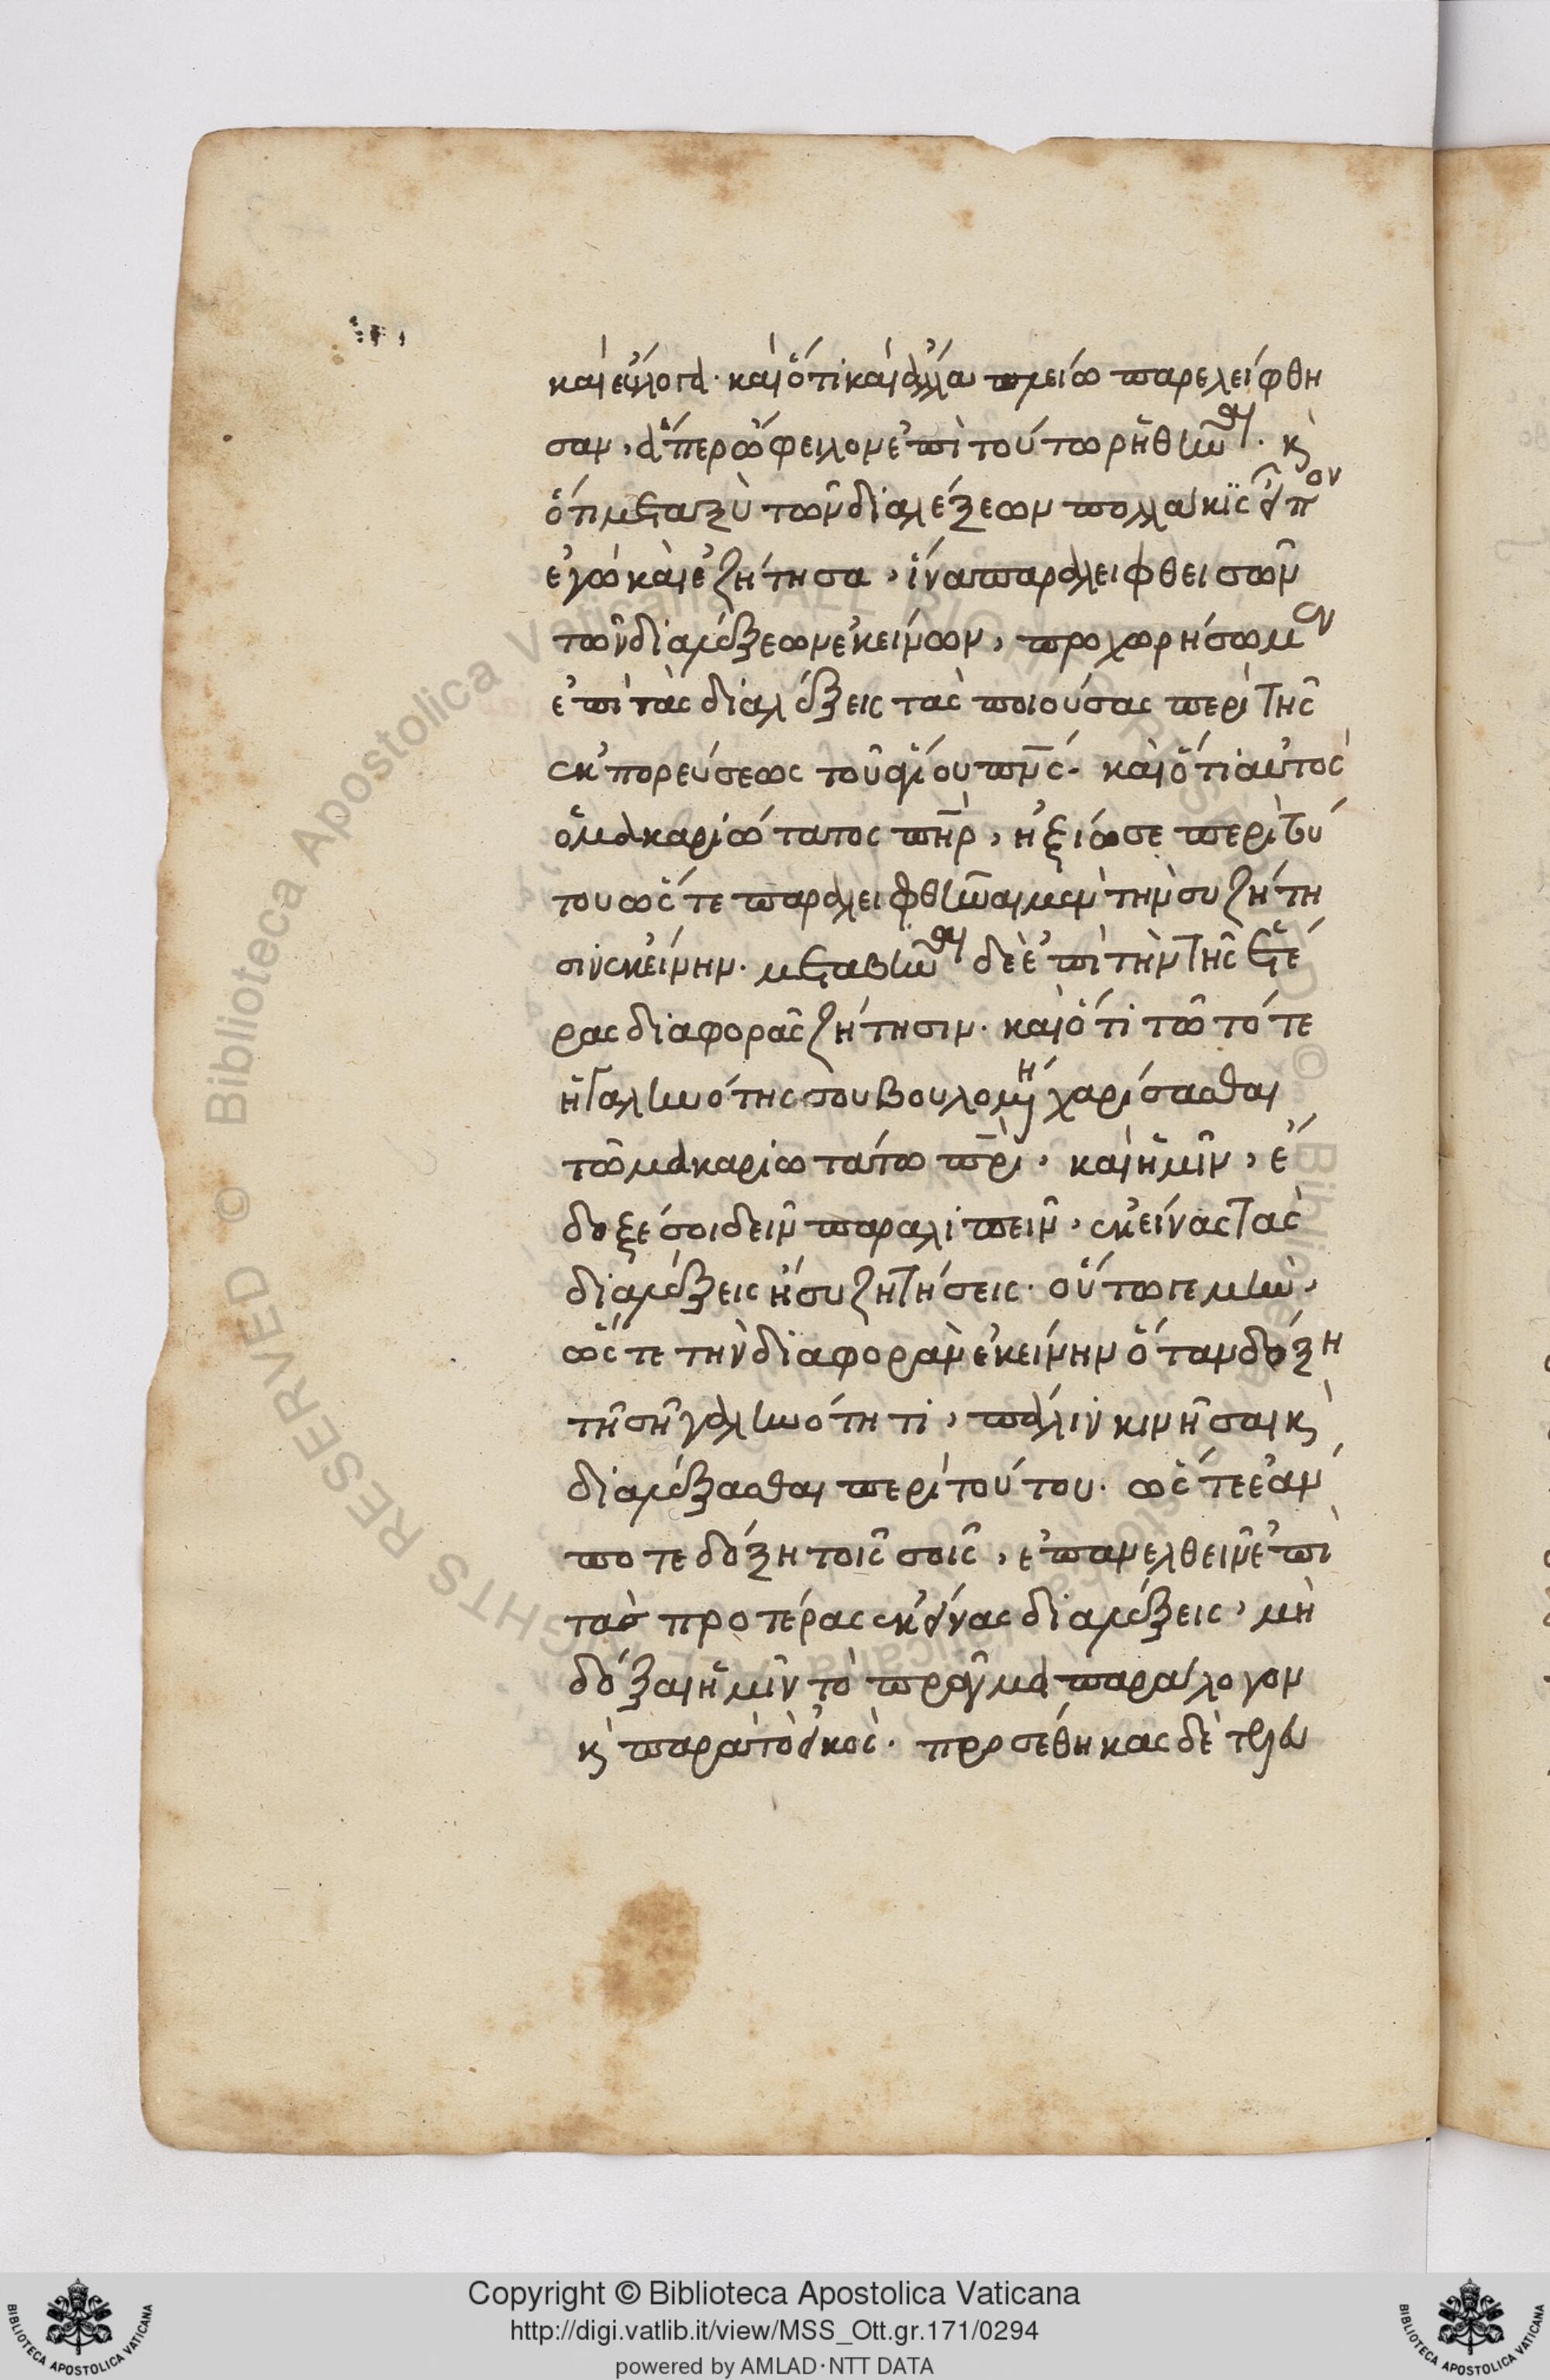 καὶ εὔλογα· καὶ ὅτι καὶ ἄλλα πλείω παρελείφθη
σαν, ἅπερ ὠφείλομεν ἐπὶ τούτω ῥηθῆναι· κ(αὶ)
ὅτι μεταξὺ τῶν διαλέξεων πολλάκις εἶπον
ἐγὼ καὶ ἐζήτησα, ἵνα παραλειφθεισῶν
τῶν διαλέξεων ἐκείνων, προχωρήσωμεν
ἐπὶ τὰς διαλέξεις τὰς ποιούσας περὶ τῆς
ἐκπορεύσεως τοῦ ἁγίου πν(εύματο)ς· καὶ ὅτι αὐτὸς
ὁ μακαριώτατος π(ατ)ὴρ, ἠξίωσε περὶ τού
του ὥστε παραλειφθῆναι μὲν τὴν συζήτη
σιν ἐκείνην· μεταβῆναι δὲ ἐπὶ τὴν τῆς ἑτέ
ρας διαφορᾶς ζήτησιν· καὶ ὅτι τῶ τότε
ἡ γαληνότης σου βουλομένη χαρίσασθαι
τῶ μακαριωτάτω π(ατ)ρὶ, καὶ ἡμῖν, ἔ
δοξέ σοι δεῖν παραλιπεῖν, ἐκείνας τὰς
διαλέξεις ἢ συζητήσεις· οὕτω π μὴν,
ὥστε τὴν διαφορὰν ἐκείνην ὅταν δόξη
τῆ σῆ γαληνότητι, πάλιν κινῆσαι κ(αὶ)
διαλέξασθαι περὶ τούτου· ὥστε ἐάν
ποτε δόξη τοῖς σοῖς, ἐπανελθεῖν ἐπὶ
τὰς προτέρας ἐκείνας διαλέξεις, μὴ
δόξαι ἡμῖν τὸ πρᾶγμα παράλογον
κ(αὶ) παρὰ τὸ εἰκός· προσέθηκας δὲ τὴν
Copyright © Biblioteca Apostolica Vaticana
http://digi.vatlib.it/view/MSS_Ott.gr.171/0294
powered by AMLAD·NTT DATA